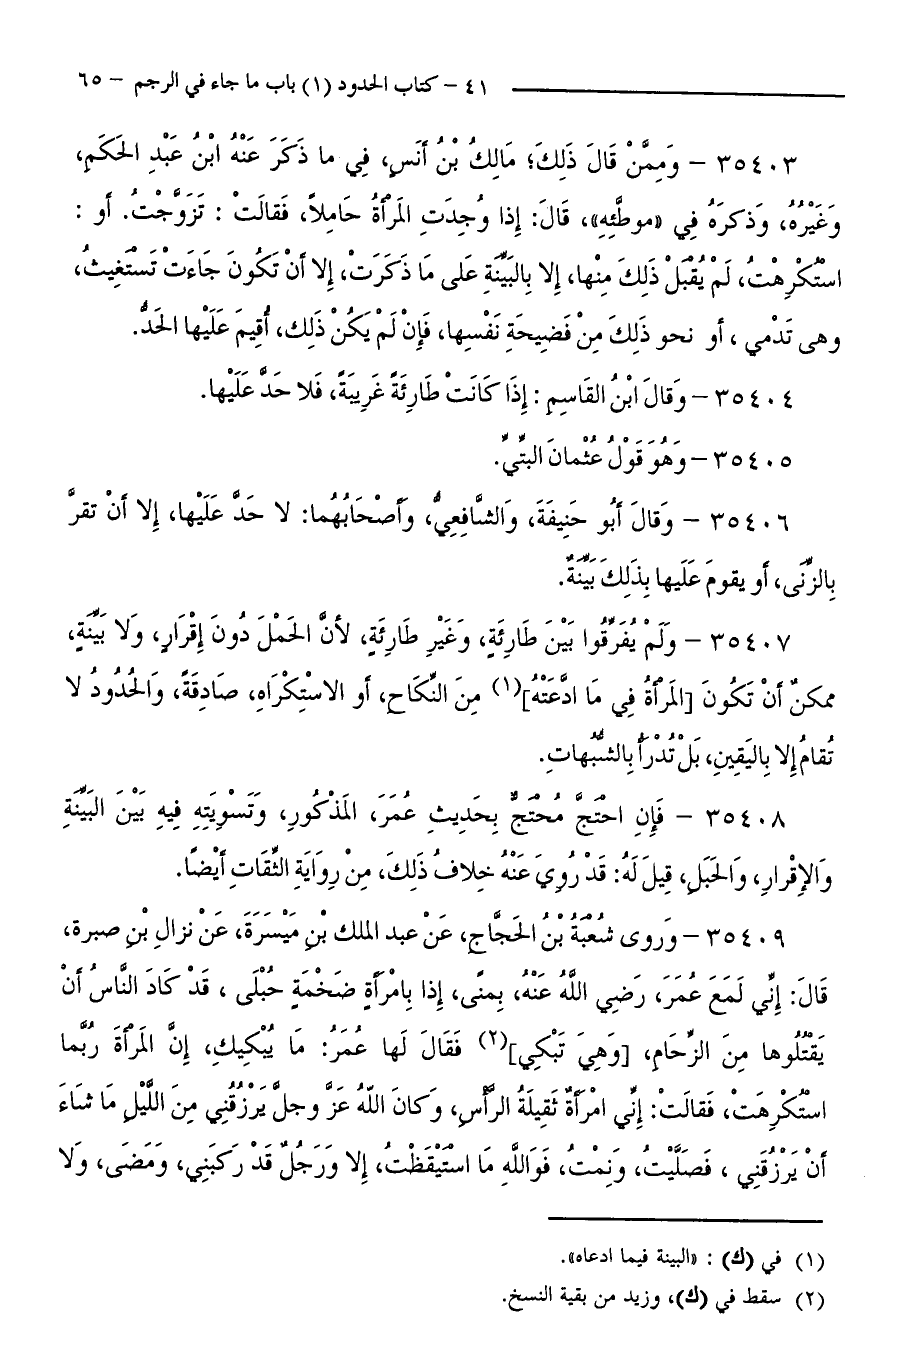 ٤١ – كتاب الحدود (١) باب ما جاء في الرجم – ٦٥
٣٥٤٠٣ – وَمِمَّنْ قَالَ ذَلِكَ؛ مَالِكُ بْنُ أَنَسٍ، فِي مَا ذَكَرَ عَنْهُ ابْنُ عَبْدِ الحَكَمِ،
وَغَيْرُهُ، وَذكرَهُ فِي «موطَّئِهِ»، قَالَ: إذا وُجدَتِ المَرْأةُ حَاملاً، فَقالَتْ : تَزَوَّجْتُ. أو :
اسْتُكْرِهْتُ، لَمْ يُقْبَلْ ذَلِكَ مِنْها، إلا بِالبَيِّنَةِ عَلى مَا ذَكَرَتْ، إلا أنْ تَكُونَ جَاءَتْ تَسْتَغِيثُ،
وهى تَدْمي ، أو نحو ذَلِكَ مِنْ فَضِيحَةِ نَفْسِها، فَإنْ لَمْ يَكُنْ ذَلِكَ، أُقِيمَ عَلَيْها الحَدُّ.
٣٥٤٠٤ – وَقالَ ابْنُ القَاسِمِ : إذَا كَانَتْ طَارِئَةً غَرِيبَةً، فَلا حَدَّ عَلَيْها.
٣٥٤٠٥ – وَهُوَ قَوْلُ عُثْمانَ البَتِّيِّ.
٣٥٤٠٦ – وَقالَ أبُو حَنِيفَةَ، وَالشَّافِعِيُّ، وَأصْحَابُهُما: لا حَدَّ عَلَيْها، إلا أنْ تقرَّ
بِالزِّنَى، أو يقومَ عَلَيها بِذَلِكَ بَيِّنَةٌ.
٣٥٤٠٧ – وَلَمْ يُفَرِّقُوا بَيْنَ طَارِئَةٍ، وَغَيْرِ طَارِئَةٍ، لأنَّ الحَمْلَ دُونَ إقْرَارٍ، وَلا بَيِّنَةٍ،
ممكنٌ أنْ تَكُونَ [المَرْأةُ فِي مَا ادَّعَتْهُ](١) مِنَ النِّكَاحِ، أو الاسْتِكْرَاهِ، صَادِقَةً، وَالحُدُودُ لا
تُقامُ إلا بِاليَقِينِ، بَلْ تُدْرَأُ بِالشُّبُهاتِ.
٣٥٤٠٨ – فَإنِ احْتَجَّ مُحْتَجٌّ بِحَديثِ عُمَرَ، المَذْكُورِ، وَتَسْوِيَتِهِ فِيهِ بَيْنَ البَيِّنَةِ
وَالإقْرارِ، وَالحَبَلِ، قِيلَ لَهُ: قَدْ رُوِيَ عَنْهُ خِلافُ ذَلكَ، مِنْ رِوَايَةِ الثِّقَاتِ أيْضًا.
٣٥٤٠٩ – وَروى شُعْبَةُ بْنُ الحَجَّاجِ، عَنْ عبد الملك بْنِ مَيْسَرَةَ، عَنْ نزالِ بْنِ صبرة،
قَالَ: إنِّي لَمَعَ عُمَرَ، رَضِي اللَّهُ عَنْهُ، بِمنًى، إذا بِامْرأةٍ ضَخْمَةٍ حُبْلَى ، قَدْ كَادَ النَّاسُ أنْ
يَقْتُلُوها مِنَ الزِّحَامِ، [وَهِيَ تَبْكِي](٢) فَقَالَ لَها عُمَرُ: مَا يُبْكيكِ، إنَّ المَرْأةَ رُبَّما
اسْتُكْرِهَتْ، فَقالَتْ: إنِّي امْرَأةٌ ثَقِيلَةُ الرَّأْسِ، وَكانَ اللَّهُ عَزَّ وجلَّ يَرْزُقُنِي مِنَ اللَّيْلِ مَا شاءَ
أنْ يَرْزُقَنِي ، فَصَلَّيْتُ، وَنِمْتُ، فَوَاللَّهِ مَا اسْتَيْقَظْتُ، إلا وَرَجُلٌ قَدْ رَكبَنِي، وَمَضَى، وَلا
(١) في (ك) : «البينة فيما ادعاه».
(٢) سقط في (ك)، وزيد من بقية النسخ.